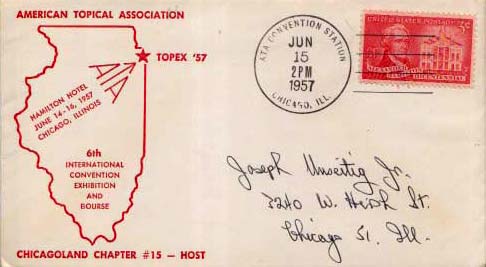 AMERICAN TOPICAL ASSOCIATION
TOPEX '57
HAMILTON HOTEL
JUNE 14-16, 1957
CHICAGO, ILLINOIS
ATA
6th
INTERNATIONAL
CONVENTION
EXHIBITION
AND
BOURSE
CHICAGOLAND CHAPTER #15 — HOST
ATA CONVENTION STATION
JUN
15
2 PM
1957
CHICAGO, ILL.
UNITED STATES POSTAGE
3¢
ALEXANDER
HAMILTON BICENTENNIAL
Joseph Jr.
3240 W. St.
Chicago 51, Ill.